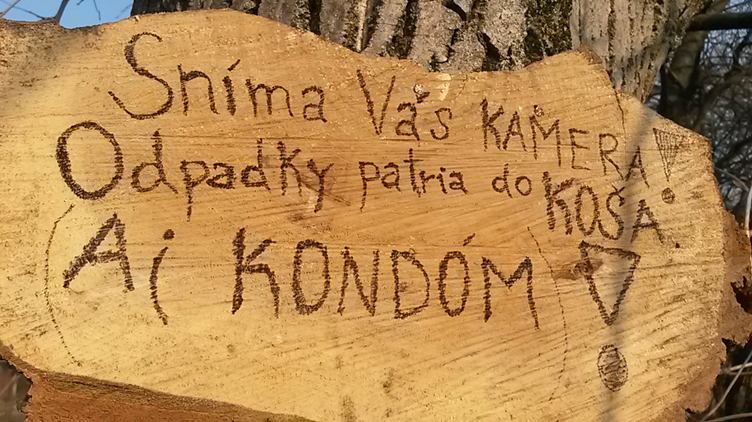 Sníma Vás KAMERA!
Odpadky patria do KOŠA.
(Ai KONDÓM)!